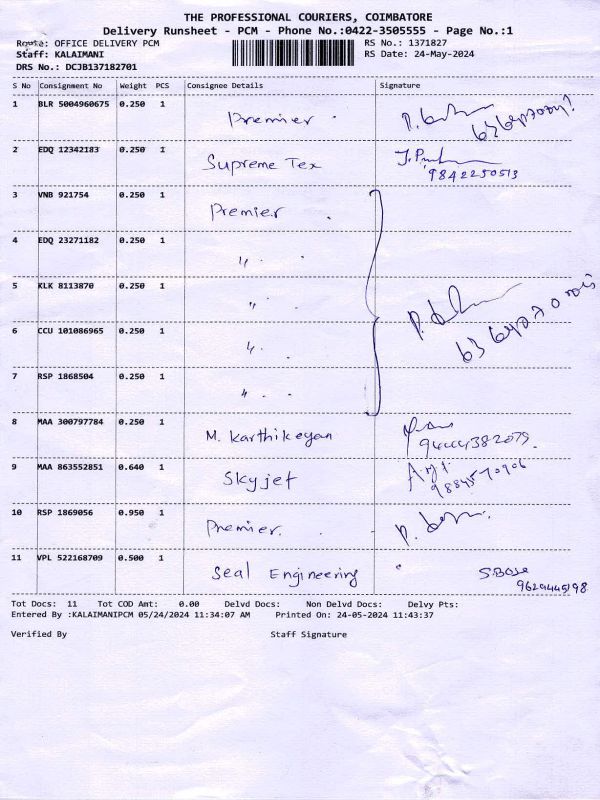 THE PROFESSIONAL COURIERS, COIMBATORE
Delivery Runsheet - PCM - Phone No.:0422-3505555 - Page No.:1
Route: OFFICE DELIVERY PCM
Staff: KALAIMANI
DRS No.: DCJB137182701
RS No.: 1371827
RS Date: 24-May-2024
S No Consignment No Weight PCS Consignee Details Signature
1 BLR 5004960675 0.250 1 Premier
2 EDQ 12342183 0.250 1 Supreme Tex
9842250513
3 VNB 921754 0.250 1 Premier
4 EDQ 23271182 0.250 1 "
5 KLK 8113870 0.250 1 "
6 CCU 101086965 0.250 1 "
7 RSP 1868504 0.250 1 "
8 MAA 300797784 0.250 1 M. Karthikeyan
9444382079
9 MAA 863552851 0.640 1 Skyjet
9884570906
10 RSP 1869056 0.950 1 Premier.
11 VPL 522168709 0.500 1 Seal Engineering S.Bose
9629445198
Tot Docs: 11 Tot COD Amt: 0.00 Delvd Docs: Non Delvd Docs: Delvy Pts:
Entered By :KALAIMANIPCM 05/24/2024 11:34:07 AM Printed On: 24-05-2024 11:43:37
Verified By Staff Signature